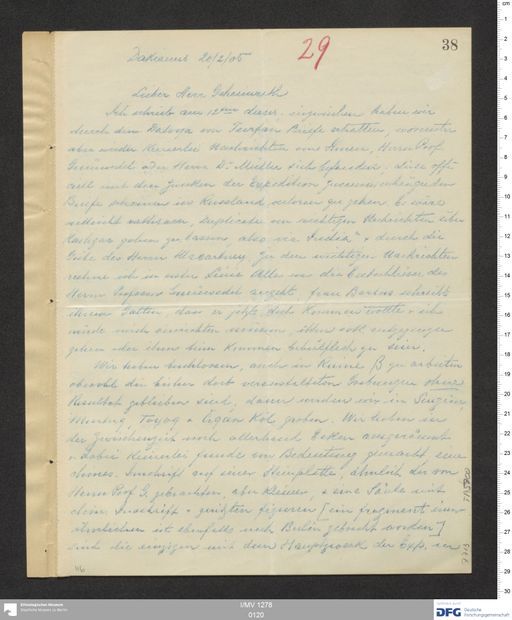 38
29
Dakianus 20/2/05
Lieber Herr Geheimrath
Ich schrieb am 12ten dieses, inzwischen haben wir
durch den Dakoya von Turfan Briefe erhalten, worunter
aber weder Nachrichten von Ihnen, Herrn Prof
Grünwedel oder Herrn Dr Müller sich befanden; diese offi
ciell mit den Zwecken der Expedition zusammenhängenden
Briefe scheinen in Russland verloren zu gehen. Es wäre
vielleicht rathsam, Duplicate von wichtigen Nachrichten über
Kashgar gehen zu lassen, also via "India" & durch die
Güte des Herrn Macartney. Zu den wichtigen Nachrichten
rechne ich in erster Linie Alles was die Entschlüsse des
Herrn Professor Grünwedel angeht. Frau Bartus schreibt
ihrem Gatten, dass er jetzt doch kommen wollte & ich
würde mich einrichten müssen, ihm entgegen
gehen oder ihm beim Kommen behülflich zu sein.
Wir haben beschlossen, auch in Ruine β zu arbeiten
obwohl die bisher dort veranstalteten Grabungen ohne
Resultat geblieben sind, dann werden wir in Sengim,
Murtuq, Toyoq & Čigan Köl graben. Wir haben in
der Zwischenzeit noch allerhand Ecken ausgeräumt
& dabei keinerlei Funde von Bedeutung gemacht, eine
chines. Inschrift auf einer Steinplatte, ähnlich der von
Herrn Prof G. gebrachten, aber kleiner, & eine Säule mit
chin. Inschrift & geritzten Figuren [ein Fragment einer
ähnlichen ist ebenfalls nach Berlin gebracht worden]
sind die einzigen mit dem Hauptzweck der Exp. in
Ethnologisches Museum
Staatliche Museen zu Berlin
I/MV 1278
0120
DFG
Deutsche
Forschungsgemeinschaft